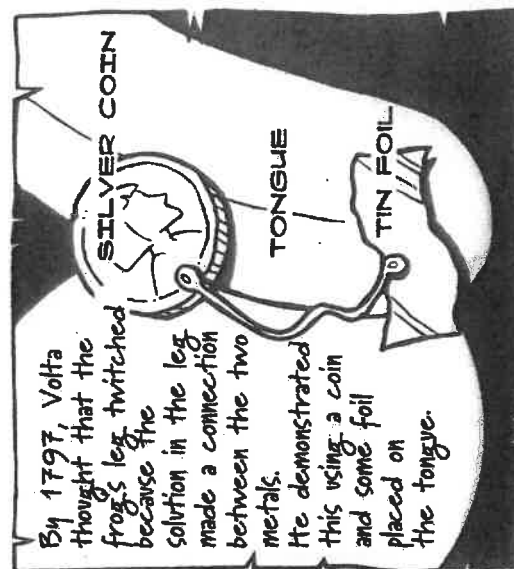 By 1797, Volta
thought that the
frog's leg twitched
because the
solution in the leg
made a connection
between the two
metals.
He demonstrated
this using a coin
and some foil
placed on
the tongue.
SILVER COIN
TONGUE
TIN FOIL